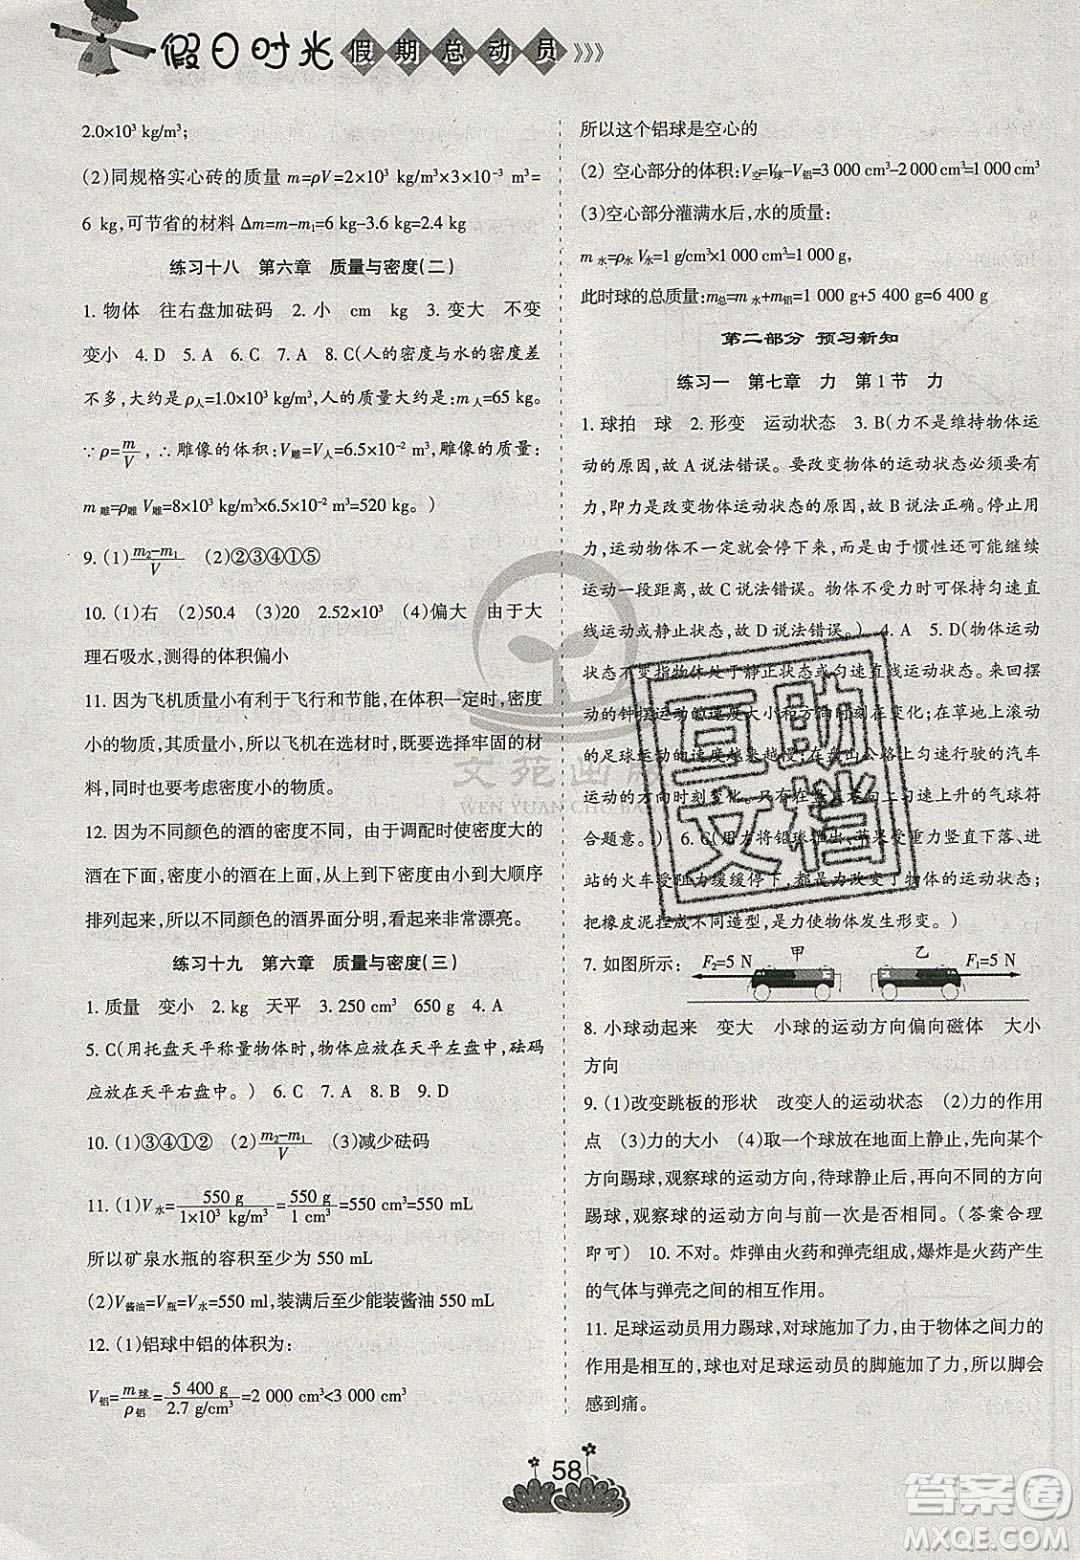 假日时光 假期总动员
2.0×10³ kg/m³;
(2)同规格实心砖的质量 m=ρV=2×10³ kg/m³×3×10⁻³ m³=
6 kg,可节省的材料 Δm=m-m₁=6 kg-3.6 kg=2.4 kg
练习十八 第六章 质量与密度(二)
1. 物体 往右盘加砝码 2. 小 cm kg 3. 变大 不变
变小 4. D 5. A 6. C 7. A 8. C(人的密度与水的密度差
不多,大约是 ρ人=1.0×10³ kg/m³,人的质量大约是 m人=65 kg。
∵ρ=m/V,∴雕像的体积:V雕=V人=6.5×10⁻² m³,雕像的质量:
m雕=ρ雕 V雕=8×10³ kg/m³×6.5×10⁻² m³=520 kg。)
9. (1)(m₂-m₁)/V (2)②③④①⑤
10. (1)右 (2)50.4 (3)20 2.52×10³ (4)偏大 由于大
理石吸水,测得的体积偏小
11. 因为飞机质量小有利于飞行和节能,在体积一定时,密度
小的物质,其质量小,所以飞机在选材时,既要选择牢固的材
料,同时也要考虑密度小的物质。
12. 因为不同颜色的酒的密度不同，由于调配时使密度大的
酒在下面,密度小的酒在上面,从上到下密度由小到大顺序
排列起来,所以不同颜色的酒界面分明,看起来非常漂亮。
练习十九 第六章 质量与密度(三)
1. 质量 变小 2. kg 天平 3. 250 cm³ 650 g 4. A
5. C(用托盘天平称量物体时,物体应放在天平左盘中,砝码
应放在天平右盘中。) 6. C 7. A 8. B 9. D
10. (1)③④①② (2)(m₂-m₁)/V (3)减少砝码
11. (1)V水=550 g/(1×10³ kg/m³)=550 g/(1 g/cm³)=550 cm³=550 mL
所以矿泉水瓶的容积至少为 550 mL
(2)V酱油=V瓶=V水=550 ml,装满后至少能装酱油 550 mL
12. (1)铝球中铝的体积为:
V铝=m球/ρ铝=5 400 g/(2.7 g/cm³)=2 000 cm³<3 000 cm³
所以这个铝球是空心的
(2) 空心部分的体积:V空=V球-V铝=3 000 cm³-2 000 cm³=1 000 cm³
(3)空心部分灌满水后,水的质量:
m水=ρ水 V水=1 g/cm³×1 000 cm³=1 000 g
此时球的总质量:m总=m水+m铝=1 000 g+5 400 g=6 400 g
第二部分 预习新知
练习一 第七章 力 第1节 力
1. 球拍 球 2. 形变 运动状态 3. B(力不是维持物体运
动的原因,故 A 说法错误。要改变物体的运动状态必须有
力,即力是改变物体运动状态的原因,故 B 说法正确。停止用
力,运动物体不一定就会停下来,而由于惯性还可能继续
运动一段距离,故 C 说法错误。物体不受力时可保持匀速直
线运动或静止状态,故 D 说法错误。) 4. A 5. D(物体运动
状态不变指物体处于静止状态或匀速直线运动状态。来回摆
动的钟摆运动的速度大小和方向在变化;在草地上滚动
的足球运动的速度越来越慢;在盘山公路上匀速行驶的汽车
运动的方向时刻变化;在空中匀速上升的气球符
合题意。) 6. C(用力将铅球推出、苹果受重力竖直下落、进
站的火车受阻力缓缓停下,都是力改变了物体的运动状态;
把橡皮泥捏成不同造型,是力使物体发生形变。)
7. 如图所示: F₂=5 N 甲 乙 F₁=5 N
8. 小球动起来 变大 小球的运动方向偏向磁体 大小
方向
9. (1)改变跳板的形状 改变人的运动状态 (2)力的作用
点 (3)力的大小 (4)取一个球放在地面上静止，向某个
方向踢球,观察球的运动方向,待球静止后,再向不同的方向
踢球,观察球的运动方向与前一次是否相同。(答案合理
即可) 10. 不对。炸弹由火药和弹壳组成,爆炸是火药产生
的气体与弹壳之间的相互作用。
11. 足球运动员用力踢球,对球施加了力,由于物体之间力的
作用是相互的,球也对足球运动员的脚施加了力,所以脚会
感到痛。
文苑出版
WEN YUAN CHU BAN
互助
文档
58
答案圈
MXQE.COM